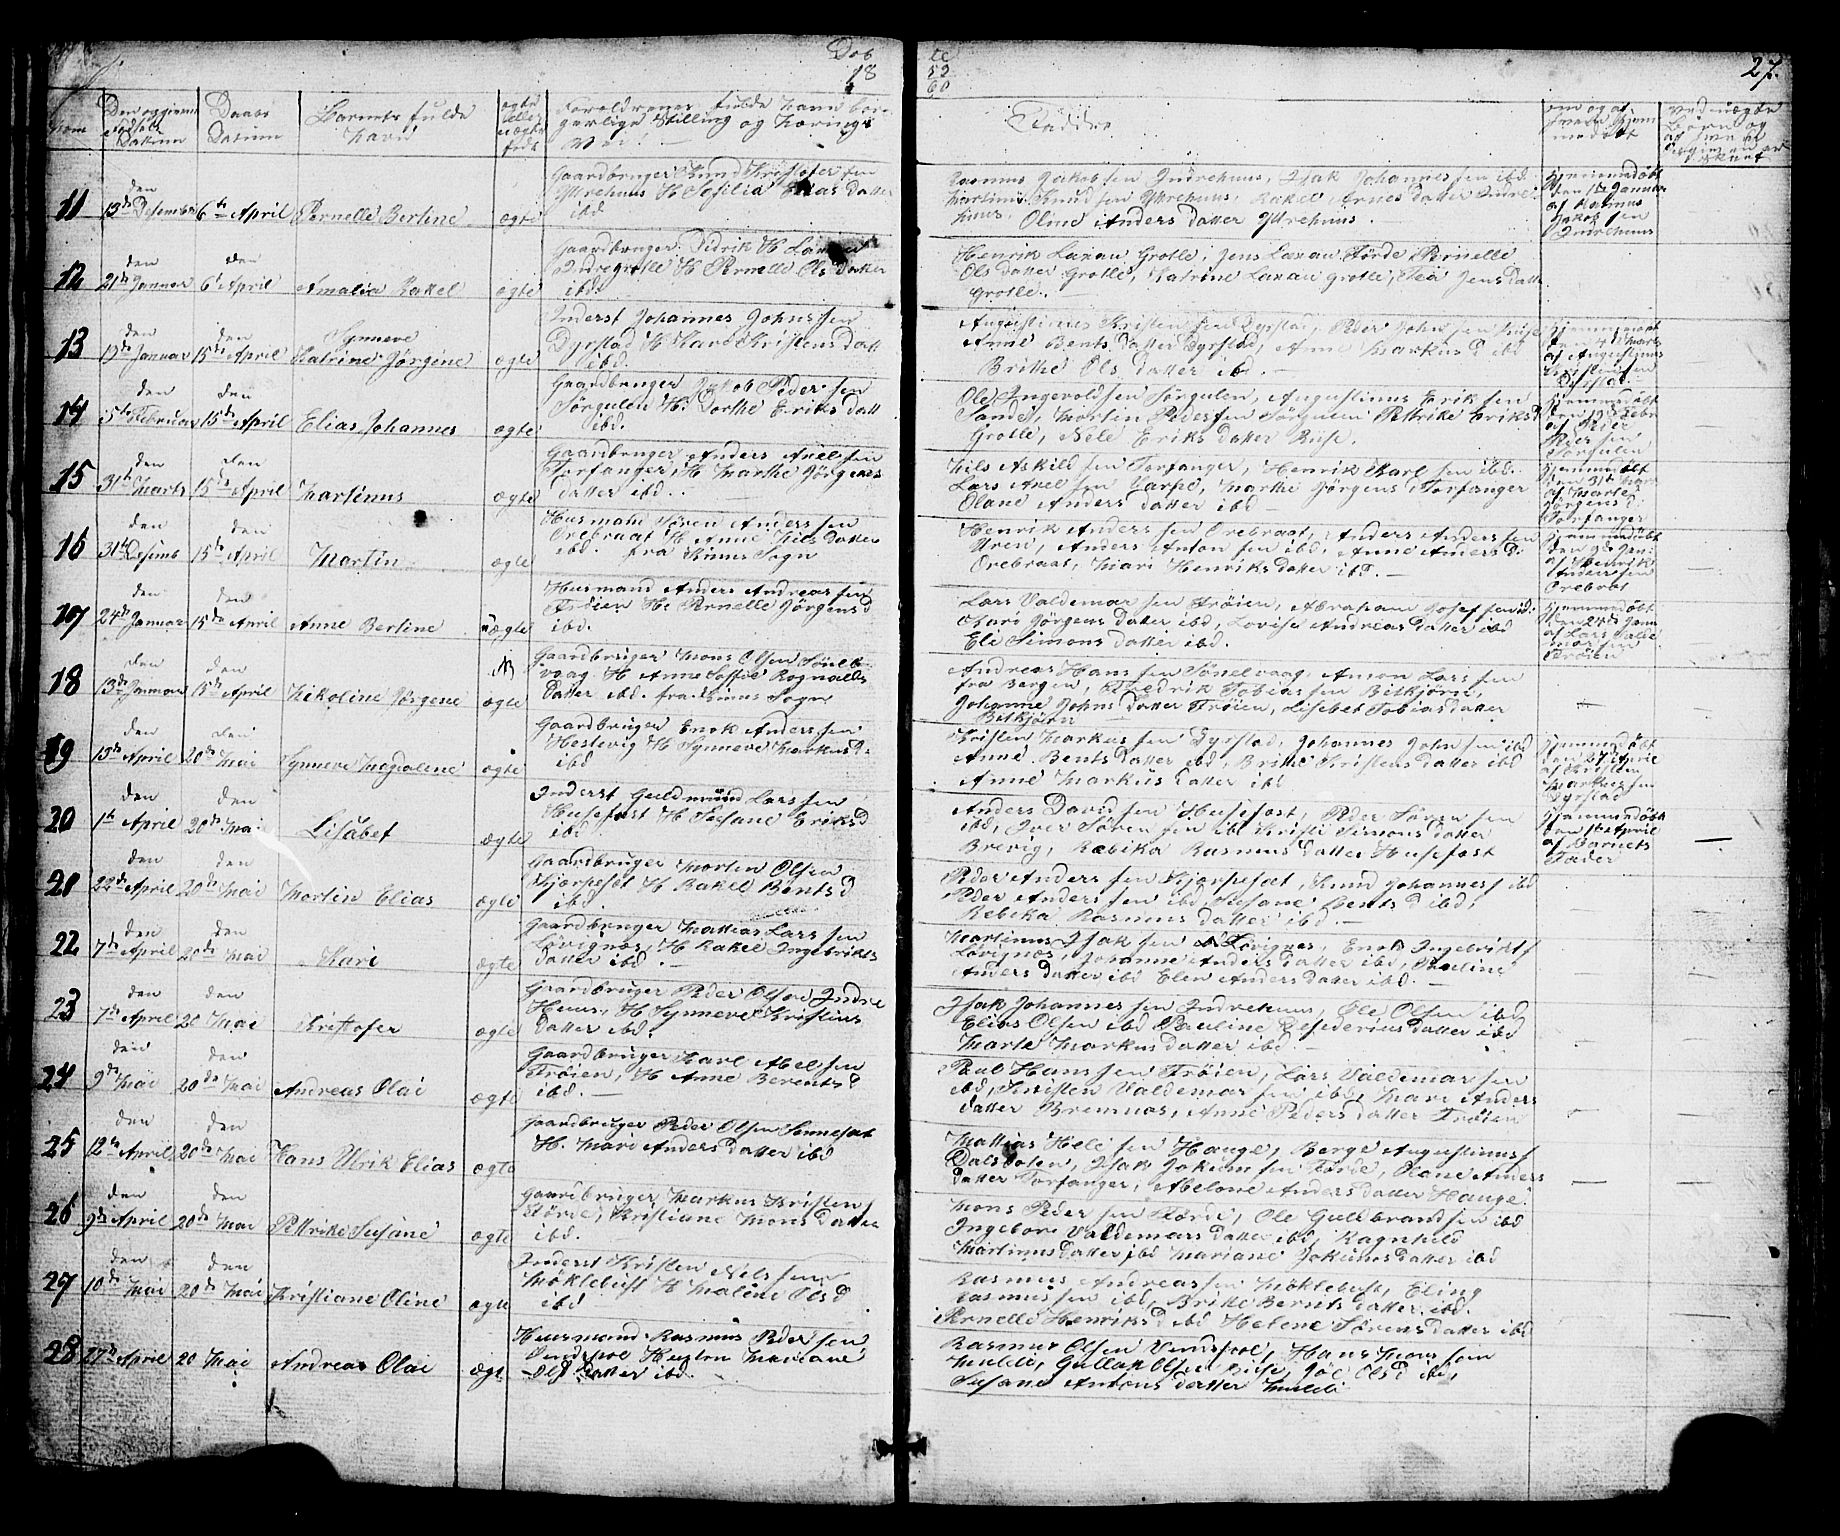 Døb
18
52
60
27.
Den opgivne
Daabs
Datum
Barnets fulde
Navn
ægte
eller
uægte
født
Forældrenes fulde Navn bor-
gerlige Stilling og Nærings
Vei.
Faddre
om og af
hvem hjem
medøbt
ved uægte
Børn og
11
den
13de Desember
6te April
Pernelle Berline
ægte
Gaardbruger Knud Kristofer sen
Yttrehuus H Sefilia Elias datter
ibd
Rasmus Jakobsen Indrehuus, Isak Johannes sen ibd
Martinus Knud sen Yttrehuus, Rakel Arnes datter Indre
huus, Oline Anders datter Yttrehuus.
Hjemmedøbt
den 1te Januar
af Rasmus
Jakob sen
Indrehuus
12
den
21de Januar
den
6te April
Amalia Rakel
ægte
Gaardbruger Didrik H
Indregrotle H Pernelle Ols datter
ibd.
Henrik Laxau Grotle, Jens Laxau Førde Pernelle
Ols datter Grotle, Katrine Laxau Grotle, Jens Datt
Grotle.
13
den
13de Januar
den
15de April
Synneve
Katrine Jørgene
ægte
Inderst Johannes Johns sen
Dyrstad H Kari Kristens datt
ibd.
Augustinus Kristen sen Dyrstad, Peder John sen
Anne Bents datter Dyrstad, Anne Markus d ibd
Brithe Ols datter ibd.
Hjemmedøbt
den 4de Marts
af Augustinus
Kristen sen
Dyrstad.
14
den
5te Februar
den
15de April
Elias Johannes
ægte
Gaardbruger Jakob Peder sen
Sørgulen H. Dorthe Eriks datt
ibd.
Ole Ingevold sen Sørgulen, Augustinus Erik sen
Sande, Morten Peder sen Sørgulen Pettrike Eriks d
Grotle, Nele Eriks datter Rise.
Hjemmedøbt
af Peder
Peder sen
Sørgulen
15
den
31te Marts
den
15de April
Martinus
ægte
Gaardbruger Anders Axel sen
Torfanger, H Marthe Jørgens
datter ibd.
Nils Askild sen Torfanger, Henrik Karl sen ibd.
Lars Axel sen Varpe, Marthe Jørgens Torfanger
Olane Anders datter ibd
Hjemmedøbt
den 31te Mar
af Marte
Jørgens d
Torfanger
16
den
31te Desemb
den
15de April
Martin
ægte
Husmand Søren Anders sen
Orebraat H Anne Nils Datter
ibd. fra Kinns Sogn
Henrik Anders sen Orebraat, Anders Anders sen
Uren, Anders Anton sen ibd, Anne Anders d:
Orebraat, Mari Henriks datter ibd.
Hjemmedøbt
af Henrik
Anders sen
Orebrat
17
den
24de Januar
den
15de April
Anne Berline
uægte
Husmand Anders Andreas sen
Frøien H. Pernelle Jørgens d
ibd.
Lars Valdemar sen Frøien, Abraham Josef sen ibd
Kari Jørgens datter ibd, Lovise Andreas datter ibd
Eli Simons datter ibd.
Hjemmedøbt
den 24de Janu
af Lars Valde
mar sen
Frøien
18
den
13de Januar
den
15de April
Nikoline Jørgene
ægte
Gaardbruger Mons Olsen Sønelb
vaag H Anne Soffie Rognalds
datter ibd. fra Kinns Sogn
Andreas Hans sen Sønelvaag, Amon Lars sen
fra Bergen, Fredrik Tobias sen Bitkjørn,
Johanne Johns datter Frøien, Lisebet Tobias datter
Bitkjørn
19
den
15de April
den
20de Mai
Synneve Magdalene
ægte
Gaardbruger Enok Anders sen
Hestevig H Synneve Markus D:
ibd
Kristen Markus sen Dyrstad, Johannes John sen ibd
Anne Bents datter ibd, Brithe Kristens datter ibd
Anne Markus datter ibd
Hjemmedøbt
den 27de April
af Kristen
Markus sen
Dyrstad
20
den
1te April
den
20de Mai
Lisabet
ægte
Inderst Guldmund Lars sen
Husefast H Susane Eriks d
ibd
Anders David sen Husefast, Peder Søren sen
ibd, Iver Søren sen ibd Kristi Simons datter
Brevig, Rebika Rasmus datter Husefast
Hjemmedøbt
den 1te April
af Barnets
Fader
21
den
22de April
den
20de Mai
Morten Elias
ægte
Gaardbruger Morten Olsen
Kjørpeset H Rakel Bents d
ibd.
Peder Anders sen Kjørpeset, Knud Johannes s ibd
Peder Anders sen ibd, Susane Bents d ibd,
Rebika Rasmus datter ibd.
22
den
7de April
den
20de Mai
Kari
ægte
Gaardbruger Mattias Lars sen
Løvignæs, H Rakel Ingebrikts
datter ibd.
Martinus Isak sen Løvignes, Enok Ingebrikt s
Løvignæs, Johanne Anders datter ibd, Pauline
Anders datter ibd Elen Anders datter ibd.
23
den
7de April
den
20 Mai
Kristofer
ægte
Gaardbruger Peder Olsen Indre
Huus, H Synneve Kristens
datter ibd.
Isak Johannes sen Indrehuus, Ole Olsen ibd
Elias Olsen ibd Pauline Desiderius datter ibd
Marte Markus datter ibd.
24
den
9de Mai
den
20de Mai
Andreas Olai
ægte
Gaardbruger Karl Abel sen
Frøien, H Anne Berents d
ibd.
Paul Hans sen Frøien, Lars Valdemar sen
ibd, Kristen Valdemar sen ibd, Mari Anders
datter Bremnæs, Anne Peders datter Frøien
25
den
12te April
den
20de Mai
Hans Ulrik Elias
ægte
Gaardbruger Peder Olsen Sennesæt
H. Mari Anders datter ibd
Mattias Hele sen Hauge, Berge Augustinus s
Dalsbøten, Isak Jokum sen Førde, Olane Anders
datter Torfanger, Abelone Anders datter Hauge
26
den
9de April
den
20de Mai
Pettrike Susane
ægte
Gaardbruger Markus Kristen s
Førde, Kristiane Mons datter
ibd.
Mons Peder sen Førde, Ole Guldbrand sen ibd
Ingebore Valdemars datter ibd, Ragnhild
Martinus datter ibd Mariane Jokums datter ibd
27
den
10de Mai
den
20de Mai
Kristiane Oline
ægte
Inderst Kristen Nels sen
Møklebust H Malene Ols d
ibd
Rasmus Andreas sen Møklebust, Eling
Rasmus sen ibd, Brite Bernts datter ibd.
Pernelle Henriks d ibd Helene Sørens datter ibd
28
27de April
20 Mai
Andreas Olai
ægt
Huusmand Rasmus Peder sen
Vindspol Hustru Mariane
Ols datter ibd.
Rasmus Olsen Vindspol, Hans Mons sen
Mulde, Gullak Olsen Rise, Joe Ols d ibd,
Susane Antons datter Mulde